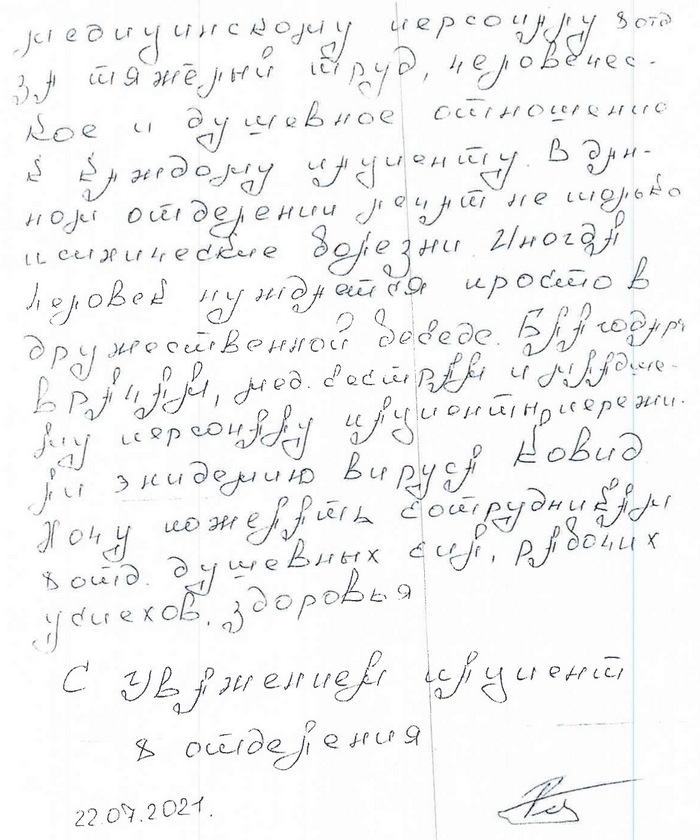 медицинскому персоналу 8 отд
за тяжёлый труд, человечес-
кое и душевное отношение
к каждому пациенту. В дан-
ном отделении лечат не только
психические болезни. Иногда
человек нуждается просто в
дружественной беседе. Благодаря
врачам, мед. сестрам и младше-
му персоналу пациенты пережи-
ли эпидемию вируса Ковид
Хочу пожелать сотрудникам
8 отд. душевных сил, рабочих
успехов, здоровья
С Уважением пациент
8 отделения
22.07.2021.